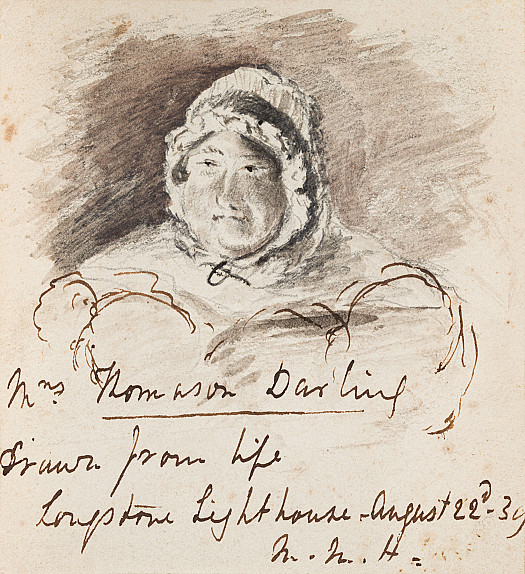 Mrs Thomason Darling
Drawn from life
Longstone Lighthouse - August 22d - 39
M. N. H =